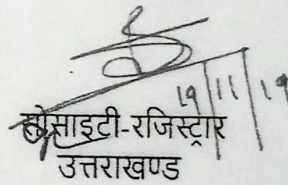 19/11/19
सोसाइटी-रजिस्ट्रार
उत्तराखण्ड